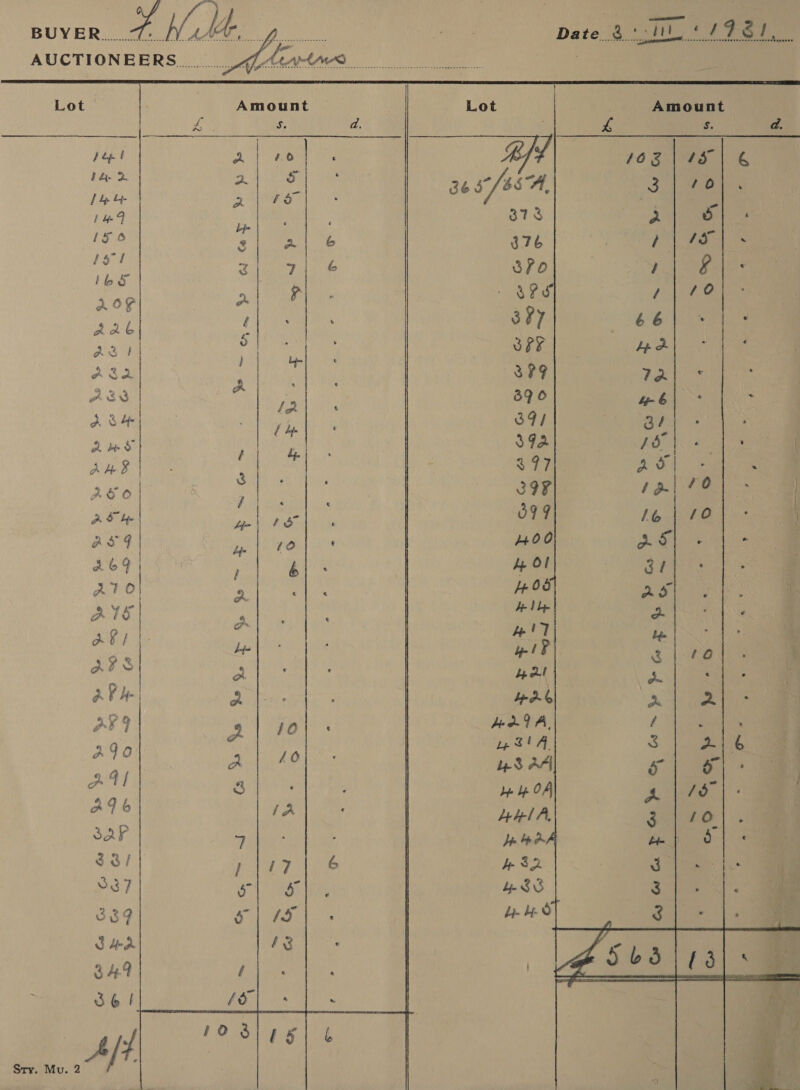 BUYER F. Webb. Date 3 : III : 1921
AUCTIONEERS
Lot Amount Lot Amount
£ s. d. £ s. d.
141 2 10 .
142 2 5 .
144 2 15 .
149 4 . .
150 3 2 6
151 3 7 6
165 2 8 .
208 1 . .
226 5 . .
231 1 4 .
232 2 . .
233 12 .
234 14 .
245 1 4 .
248 3 . .
250 1 . .
254 4 15 .
259 4 10 .
269 1 6 .
270 2 . .
275 2 . .
281 4 . .
283 2 . .
284 2 . .
289 2 10 .
290 2 10 .
291 3 . .
296 12 .
328 7 . .
331 1 17 6
337 5 5 .
339 5 15 .
342 13 .
349 1 . .
361 15 . .
103 15 6
Sty. Mu. 2
B/f 103 15 6
365/65A, 3 10 .
373 2 5 .
376 1 15 .
380 1 8 .
385 1 10 .
387 66 . .
388 42 . .
389 72 . .
390 46 . .
391 31 . .
392 15 . .
397 25 . .
398 12 10 .
399 16 10 .
400 25 . .
401 31 . .
405 25 . .
414 2 . .
417 4 . .
418 3 10 .
421 2 . .
426 2 2 .
429A, 1 . .
431A, 3 2 6
432A 5 5 .
440A 2 15 .
441A, 3 10 .
442A 4 5 .
432 3 . .
433 3 . .
445 3 . .
£563 13 .